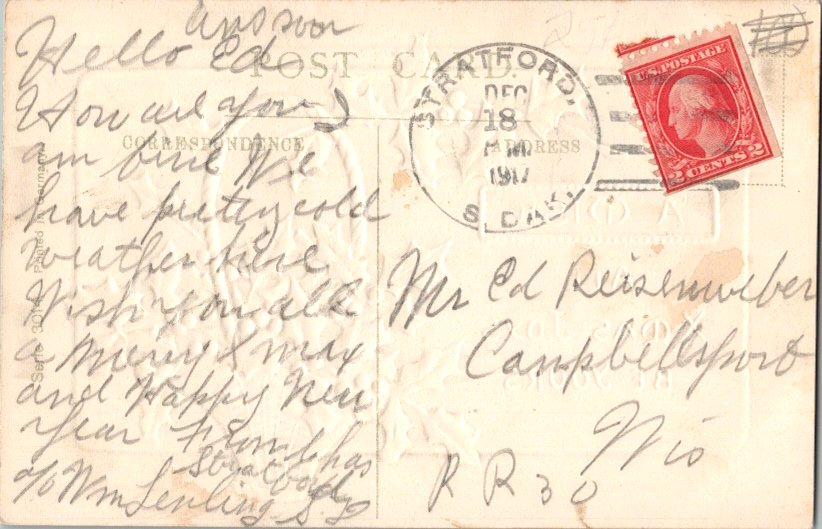 Ans soon
Hello Ed
POST CARD.
How are you
CORRESPONDENCE
am fine We
have pretty cold
weather here
Wish you all
a Merry Xmax
and Happy New
Year From Chas
Stratford
c/o Wm S. D
Serie Printed in Germany
STRATFORD,
DEC
18
1917
S. DAK.
ADDRESS
U.S. POSTAGE
2 CENTS 2
Mr Ed Reisenweber
Campbellsport
Wis
R R 30